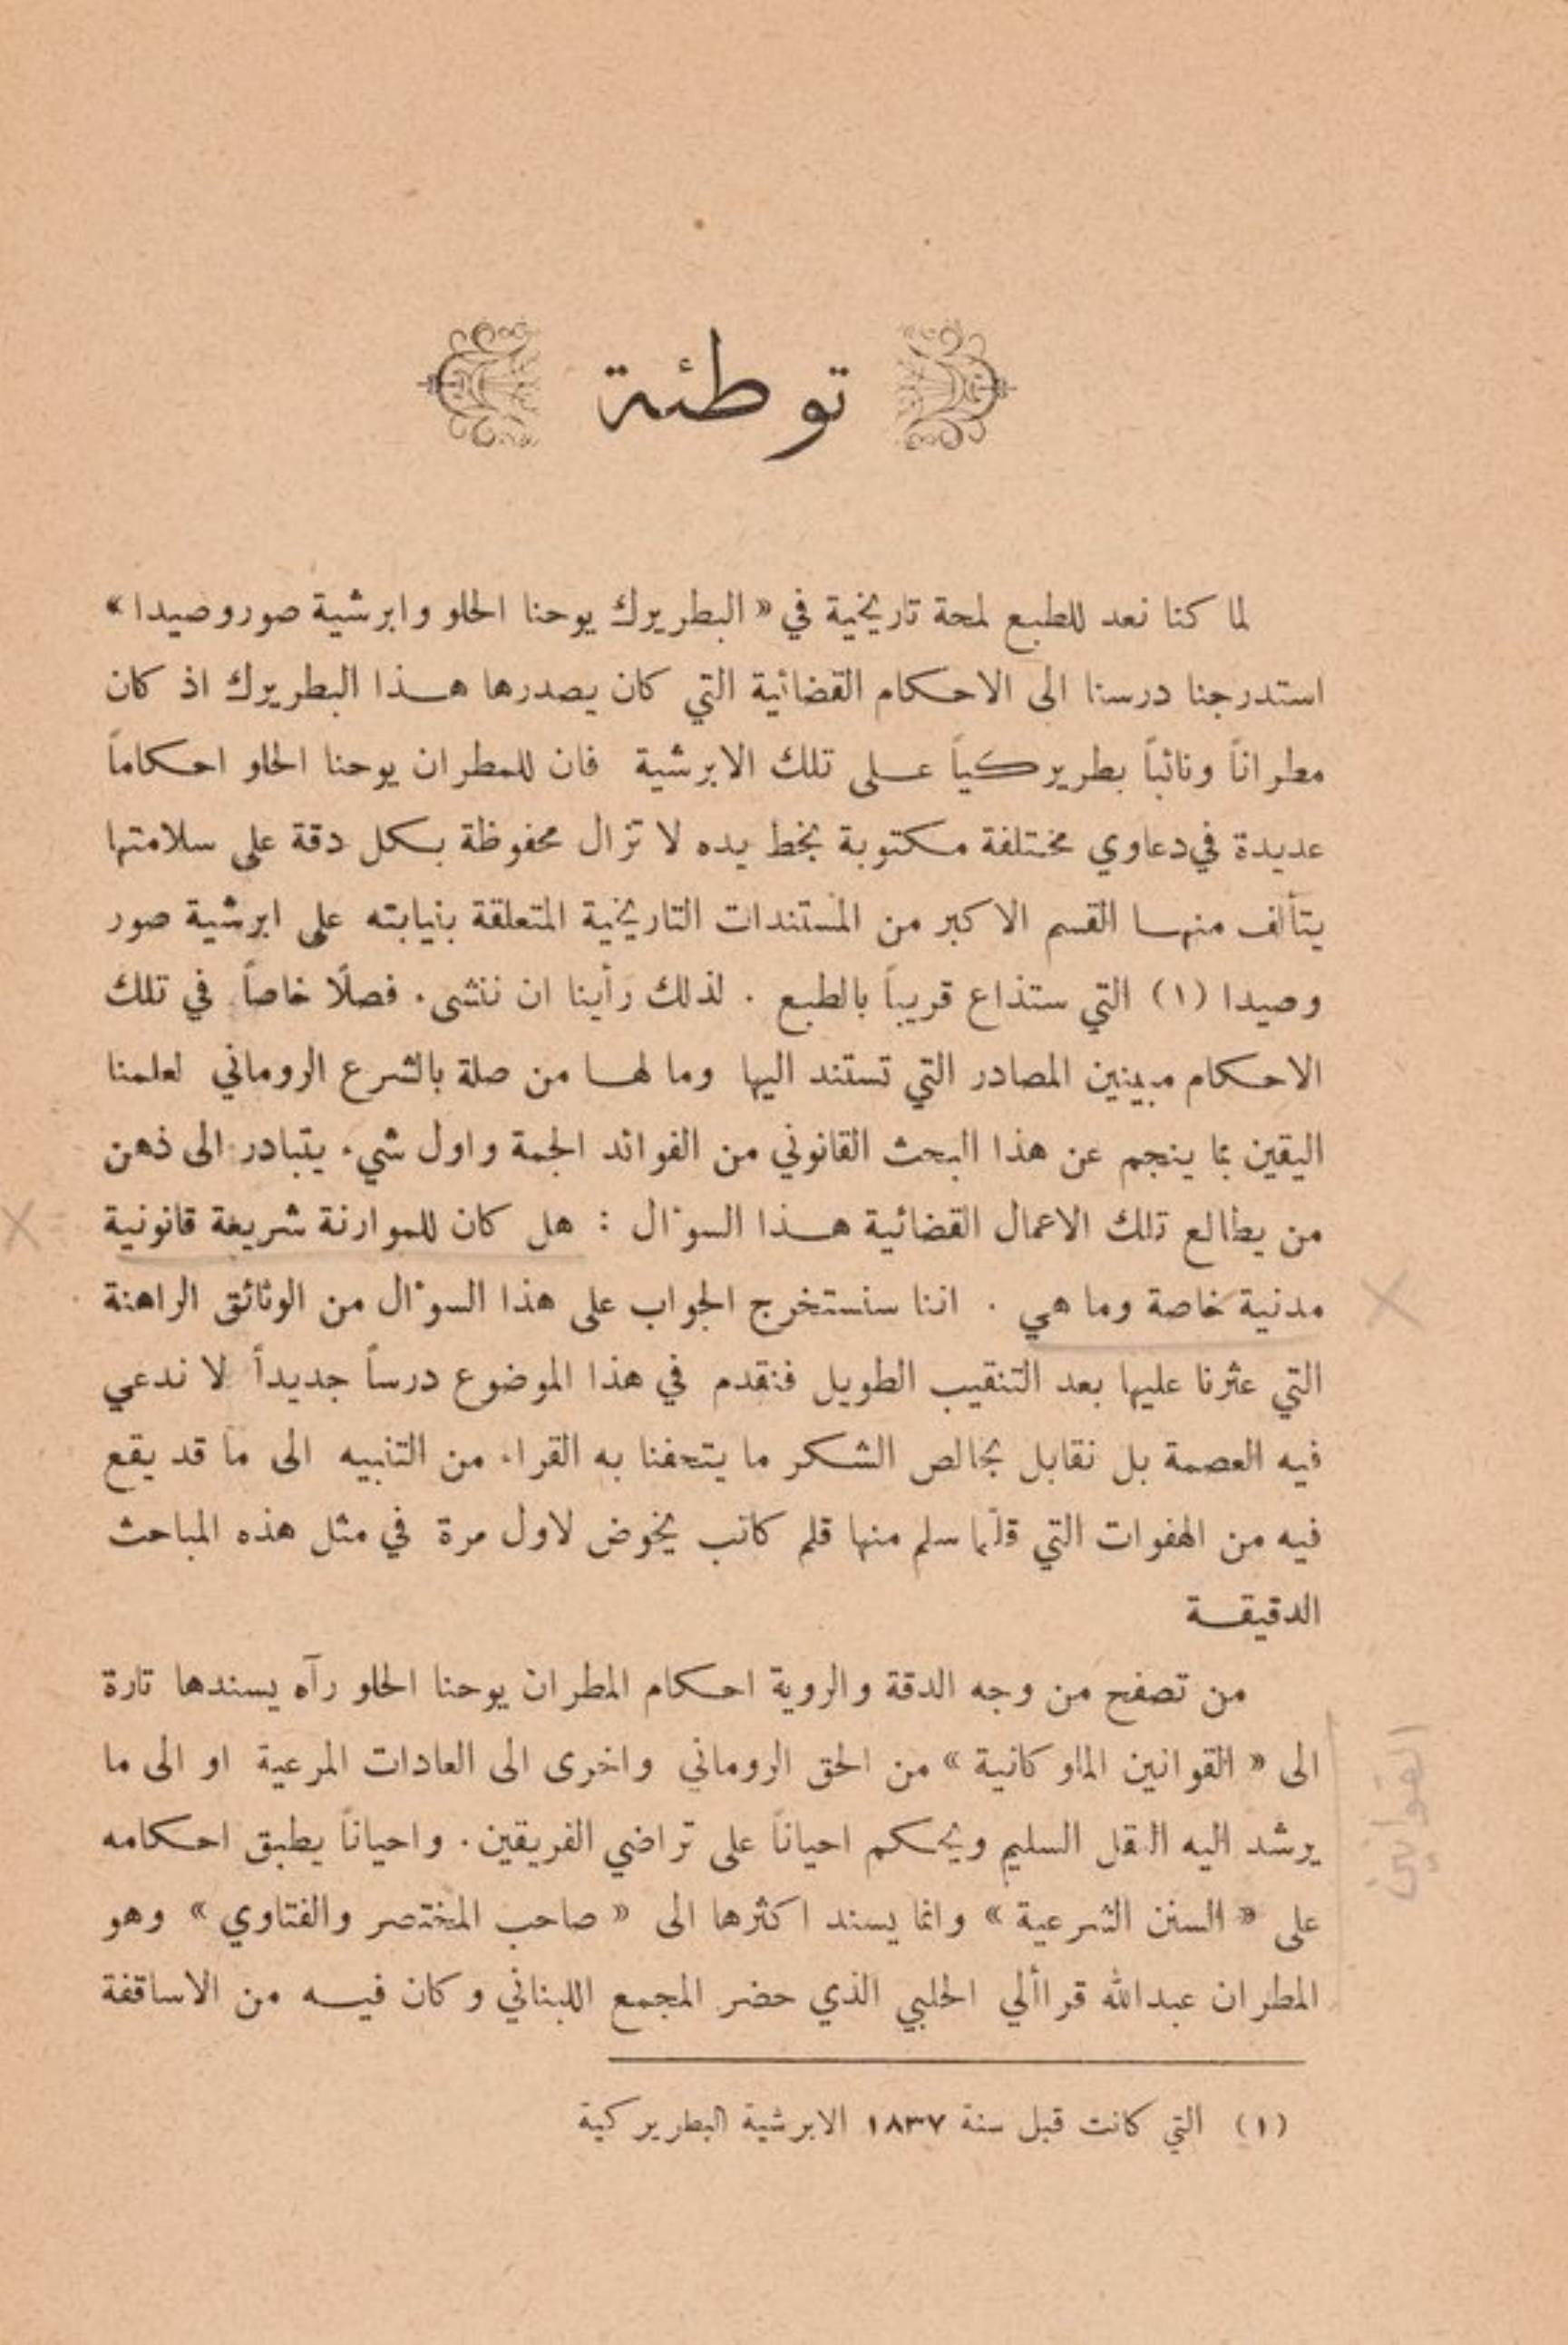 توطئة
لما كنا نعد للطبع لمحة تاريخية في « البطريرك يوحنا الحلو وابرشية صور وصيدا »
استدرجنا درسنا الى الاحكام القضائية التي كان يصدرها هذا البطريرك اذ كان
مطراناً ونائباً بطريركياً على تلك الابرشية فان للمطران يوحنا الحلو احكاماً
عديدة في دعاوي مختلفة مكتوبة بخط يده لا تزال محفوظة بكل دقة على سلامتها
يتألف منها القسم الاكبر من المستندات التاريخية المتعلقة بنيابته على ابرشية صور
وصيدا (١) التي ستذاع قريباً بالطبع . لذلك رأينا ان ننشىء فصلًا خاصاً في تلك
الاحكام مبينين المصادر التي تستند اليها وما لها من صلة بالشرع الروماني لعلمنا
اليقين بما ينجم عن هذا البحث القانوني من الفوائد الجمة واول شيء يتبادر الى ذهن
من يطالع تلك الاعمال القضائية هذا السؤال : هل كان للموارنة شريعة قانونية
مدنية خاصة وما هي . اننا سنستخرج الجواب على هذا السؤال من الوثائق الراهنة
التي عثرنا عليها بعد التنقيب الطويل فنقدم في هذا الموضوع درساً جديداً لا ندعي
فيه العصمة بل نقابل بخالص الشكر ما يتحفنا به القراء من التنبيه الى ما قد يقع
فيه من الهفوات التي قلّما سلم منها قلم كاتب يخوض لاول مرة في مثل هذه المباحث
الدقيقة
من تصفح من وجه الدقة والروية احكام المطران يوحنا الحلو رآه يسندها تارة
الى « القوانين الملوكانية » من الحق الروماني واخرى الى العادات المرعية او الى ما
يرشد اليه العقل السليم ويحكم احياناً على تراضي الفريقين . واحياناً يطبق احكامه
على « السنن الشرعية » وانما يسند اكثرها الى « صاحب المختصر والفتاوي » وهو
المطران عبدالله قراألي الحلبي الذي حضر المجمع اللبناني وكان فيه من الاساقفة
(١) التي كانت قبل سنة ١٨٣٧ الابرشية البطريركية
القوانين